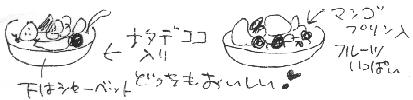 ナタデココ
入り
下はシャーベット
どっちもおいしい
マンゴ
プリン入
フルーツ
いっぱい